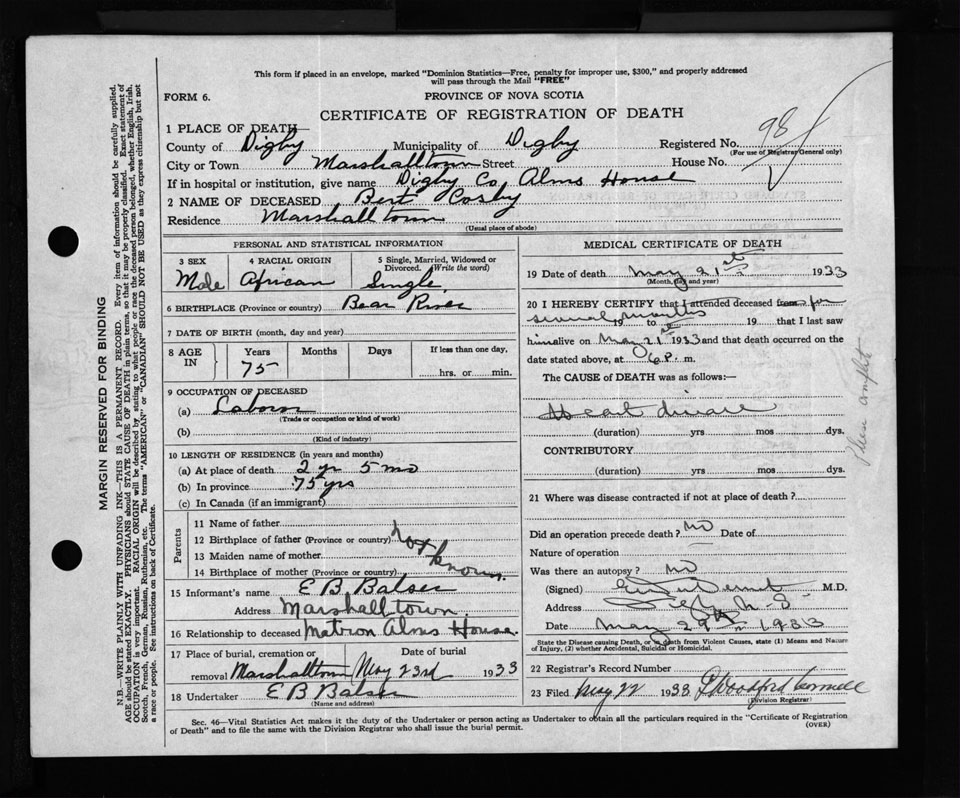 This form if placed in an envelope, marked "Dominion Statistics—Free, penalty for improper use, $300," and properly addressed
will pass through the Mail "FREE"
FORM 6.
PROVINCE OF NOVA SCOTIA
CERTIFICATE OF REGISTRATION OF DEATH
1 PLACE OF DEATH—
County of Digby Municipality of Digby Registered No. 98
(For use of Registrar General only)
City or Town Marshalltown Street House No.
If in hospital or institution, give name Digby Co, Alms House
2 NAME OF DECEASED Bert Cosby
Residence Marshalltown
(Usual place of abode)
PERSONAL AND STATISTICAL INFORMATION
3 SEX 4 RACIAL ORIGIN 5 Single, Married, Widowed or
Divorced. (Write the word)
Male African Single
6 BIRTHPLACE (Province or country) Bear River
7 DATE OF BIRTH (month, day and year)
8 AGE IN Years Months Days If less than one day,
75 hrs. or min.
9 OCCUPATION OF DECEASED
(a) Laborer
(Trade or occupation or kind of work)
(b)
(Kind of industry)
10 LENGTH OF RESIDENCE (in years and months)
(a) At place of death 2 yr 5 mo
(b) In province 75 yrs
(c) In Canada (if an immigrant)
Parents
11 Name of father
12 Birthplace of father (Province or country) not known
13 Maiden name of mother
14 Birthplace of mother (Province or country)
15 Informant's name E B Balser
Address Marshalltown.
16 Relationship to deceased Matron Alms House.
17 Place of burial, cremation or Date of burial
removal Marshalltown May 23rd 1933
18 Undertaker E B Balser
(Name and address)
MEDICAL CERTIFICATE OF DEATH
19 Date of death May 21st 1933
(Month, day and year)
20 I HEREBY CERTIFY that I attended deceased from for
several months 19 to 19 that I last saw
him alive on May 21st 1933 and that death occurred on
date stated above, at 6 P. m.
The CAUSE of DEATH was as follows:—
Heart disease
(duration) yrs mos dys.
CONTRIBUTORY
(duration) yrs mos dys.
21 Where was disease contracted if not at place of death?
Did an operation precede death? no Date of
Nature of operation
Was there an autopsy? no
(Signed) M.D.
Address Digby N.S.
Date May 29th 1933
State the Disease causing Death, or in death from Violent Causes, state (1) Means and Nature
of Injury, (2) whether Accidental, Suicidal or Homicidal.
22 Registrar's Record Number
23 Filed May 22 1933.
(Division Registrar)
Sec. 46—Vital Statistics Act makes it the duty of the Undertaker or person acting as Undertaker to obtain all the particulars required in the "Certificate of Registration
of Death" and to file the same with the Division Registrar who shall issue the burial permit.
(OVER)
MARGIN RESERVED FOR BINDING
N.B.—WRITE PLAINLY WITH UNFADING INK—THIS IS A PERMANENT RECORD. Every item of information should be carefully supplied.
AGE should be stated EXACTLY. PHYSICIANS should STATE CAUSE OF DEATH in plain terms, so that it may be properly classified. Exact statement of
OCCUPATION is very important. RACIAL ORIGIN will be described by stating to what people or race the deceased person belonged, whether English, Irish,
Scotch, French, German, Russian, Ruthenian, etc. The terms "AMERICAN" or "CANADIAN" SHOULD NOT BE USED as they express citizenship but not
a race or people. See instructions on back of Certificate.